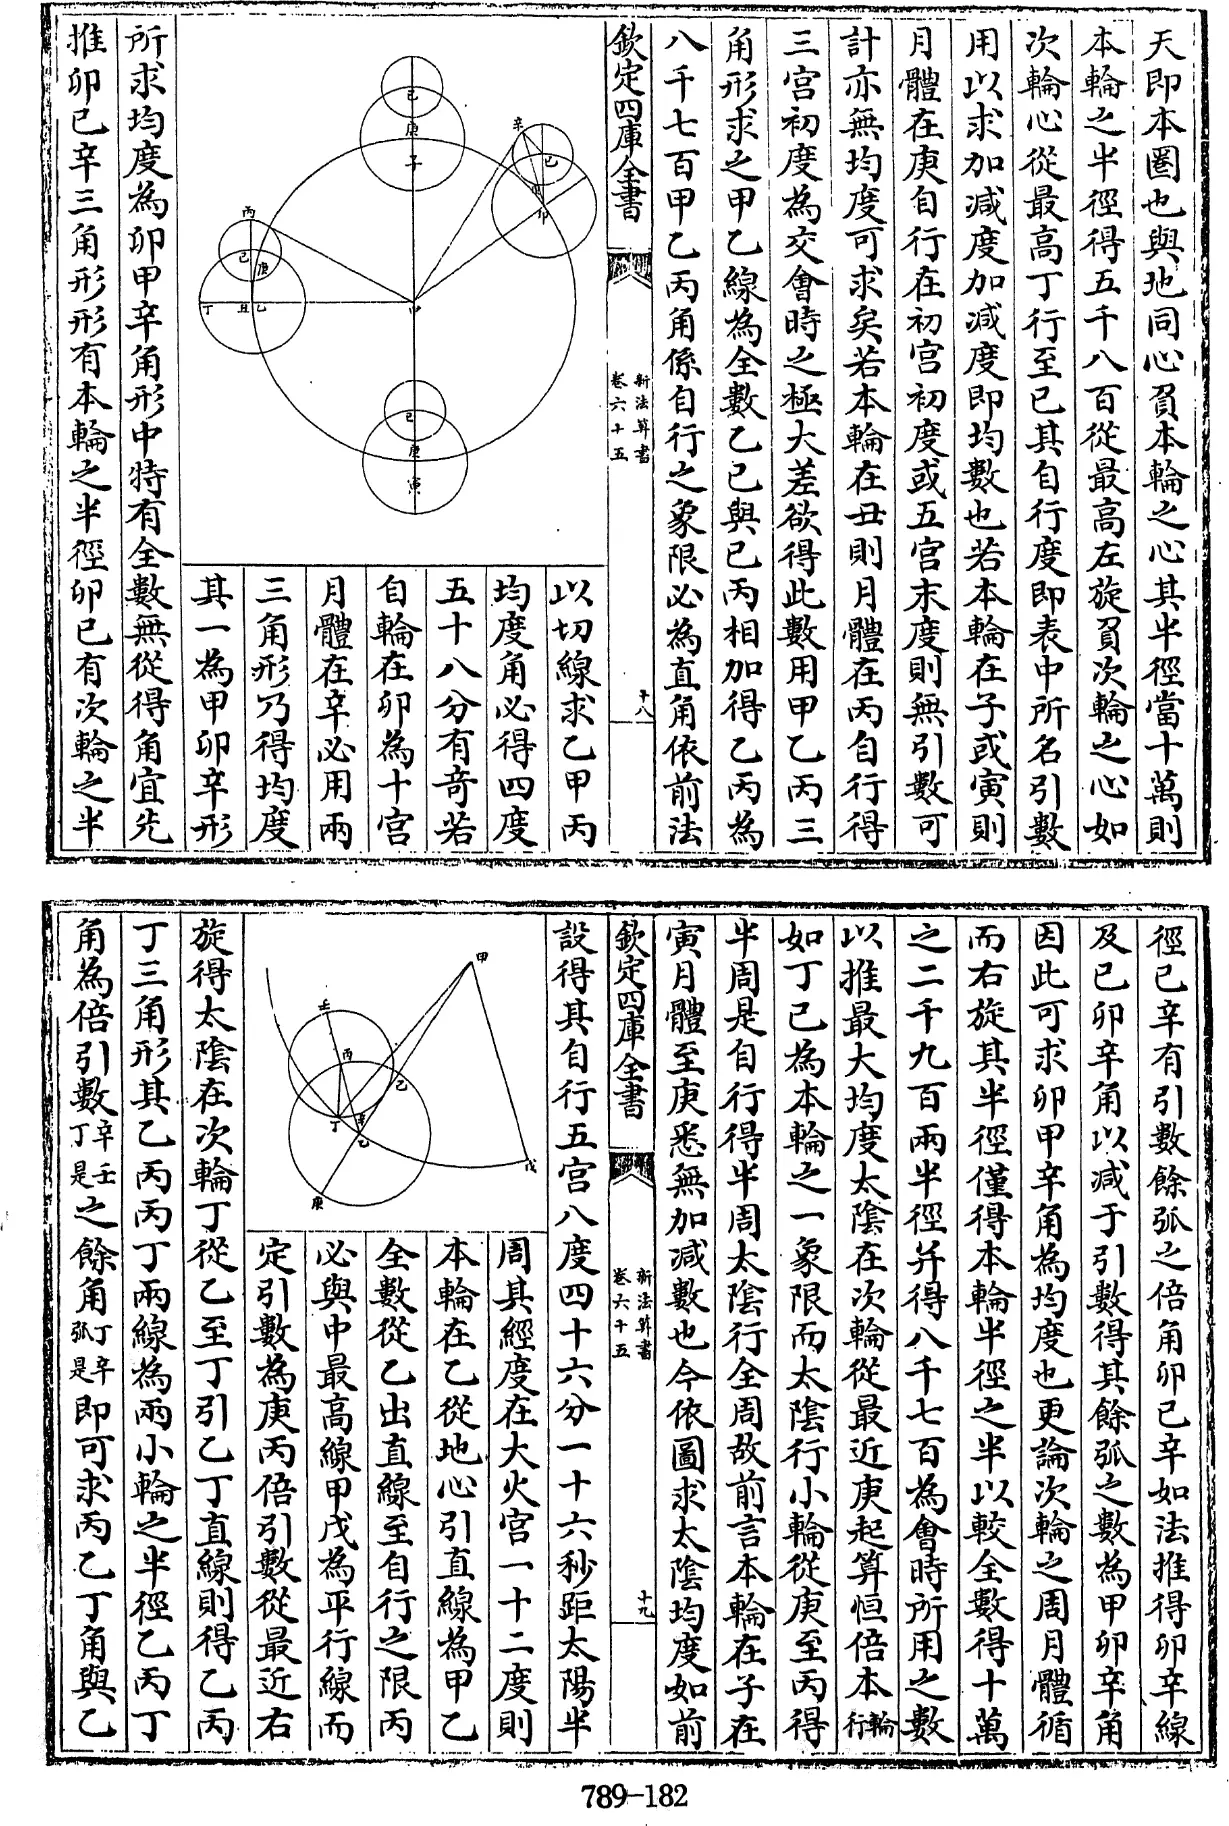 天即本圈也與地同心負本輪之心其半徑當十萬則
本輪之半徑得五千八百從最高左旋負次輪之心如
次輪心從最高丁行至已其自行度即表中所名引數
用以求加減度加減度即均數也若本輪在子或寅則
月體在庚自行在初宮初度或五宮末度則無引數可
計亦無均度可求矣若本輪在丑則月體在丙自行得
三宮初度為交會時之極大差欲得此數用甲乙丙三
角形求之甲乙線為全數乙已與已丙相加得乙丙為
八千七百甲乙丙角係自行之象限必為直角依前法
欽定四庫全書
新法算書
卷六十五
十八
以切線求乙甲丙
均度角必得四度
五十八分有奇若
自輪在卯為十宮
月體在辛必用兩
三角形乃得均度
其一為甲卯辛形
已
庚
子
辛
已
卯
丙
已
庚
丁
丑
乙
甲
已
庚
寅
所求均度為卯甲辛角形中特有全數無從得角宜先
推卯已辛三角形形有本輪之半徑卯已有次輪之半
徑已辛有引數餘弧之倍角卯已辛如法推得卯辛線
及已卯辛角以減于引數得其餘弧之數為甲卯辛角
因此可求卯甲辛角為均度也更論次輪之周月體循
而右旋其半徑僅得本輪半徑之半以較全數得十萬
之二千九百兩半徑并得八千七百為會時所用之數
以推最大均度太陰在次輪從最近庚起算恒倍本輪行
如丁已為本輪之一象限而太陰行小輪從庚至丙得
半周是自行得半周太陰行全周故前言本輪在子在
寅月體至庚悉無加減數也今依圖求太陰均度如前
欽定四庫全書
新法算書
卷六十五
十九
設得其自行五宮八度四十六分一十六秒距太陽半
周其經度在大火宮一十二度則
本輪在乙從地心引直線為甲乙
全數從乙出直線至自行之限丙
必與中最高線甲戊為平行線而
定引數為庚丙倍引數從最近右
甲
壬
丙
乙
丁
辛
乙
戊
庚
旋得太陰在次輪丁從乙至丁引乙丁直線則得乙丙
丁三角形其乙丙丙丁兩線為兩小輪之半徑乙丙丁
角為倍引數辛壬丁是之餘角丁辛弧是即可求丙乙丁角與乙
789-182